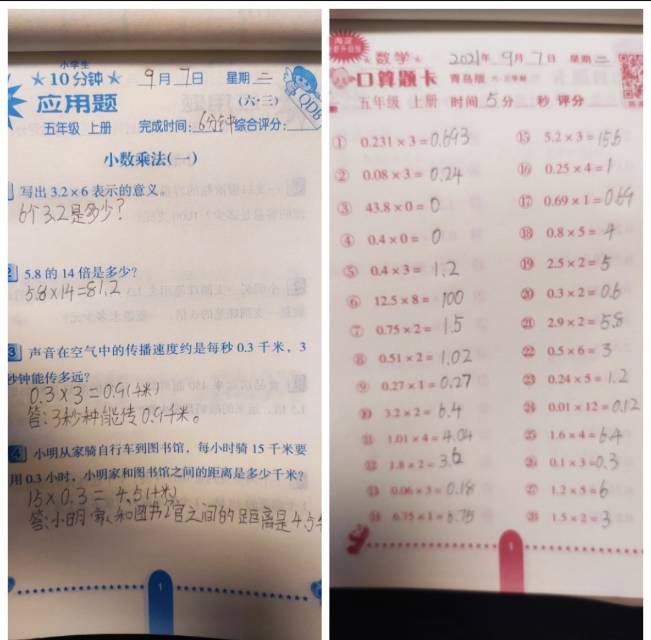 小学生
★10分钟★ 9月7日 星期二
应用题 (六·三)
五年级 上册 完成时间:6分钟综合评分:
小数乘法(一)
写出3.2×6表示的意义。
6个3.2是多少?
2 5.8的14倍是多少?
5.8×14=81.2
3 声音在空气中的传播速度约是每秒0.3千米,3
秒钟能传多远?
0.3×3=0.9(千米)
答:3秒种能传0.9千米。
4 小明从家骑自行车到图书馆,每小时骑15千米要
用0.3小时,小明家和图书馆之间的距离是多少千米?
15×0.3=4.5(千米)
答:小明家和图书馆之间的距离是4.5千
1
数学 2021年9月7日 星期二
口算题卡 青岛版 六·三学制
五年级 上册 时间5分 秒 评分
① 0.231×3=0.693
② 0.08×3=0.24
③ 43.8×0=0
④ 0.4×0=0
⑤ 0.4×3=1.2
⑥ 12.5×8=100
⑦ 0.75×2=1.5
⑧ 0.51×2=1.02
⑨ 0.27×1=0.27
⑩ 3.2×2=6.4
⑪ 1.01×4=4.04
⑫ 1.8×2=3.6
⑬ 0.06×3=0.18
⑭ 6.75×1=6.75
⑮ 5.2×3=15.6
⑯ 0.25×4=1
⑰ 0.69×1=0.69
⑱ 0.8×5=4
⑲ 2.5×2=5
⑳ 0.3×2=0.6
㉑ 2.9×2=5.8
㉒ 0.5×6=3
㉓ 0.24×5=1.2
㉔ 0.01×12=0.12
㉕ 1.6×4=6.4
㉖ 0.1×3=0.3
㉗ 1.2×5=6
㉘ 1.5×2=3
1